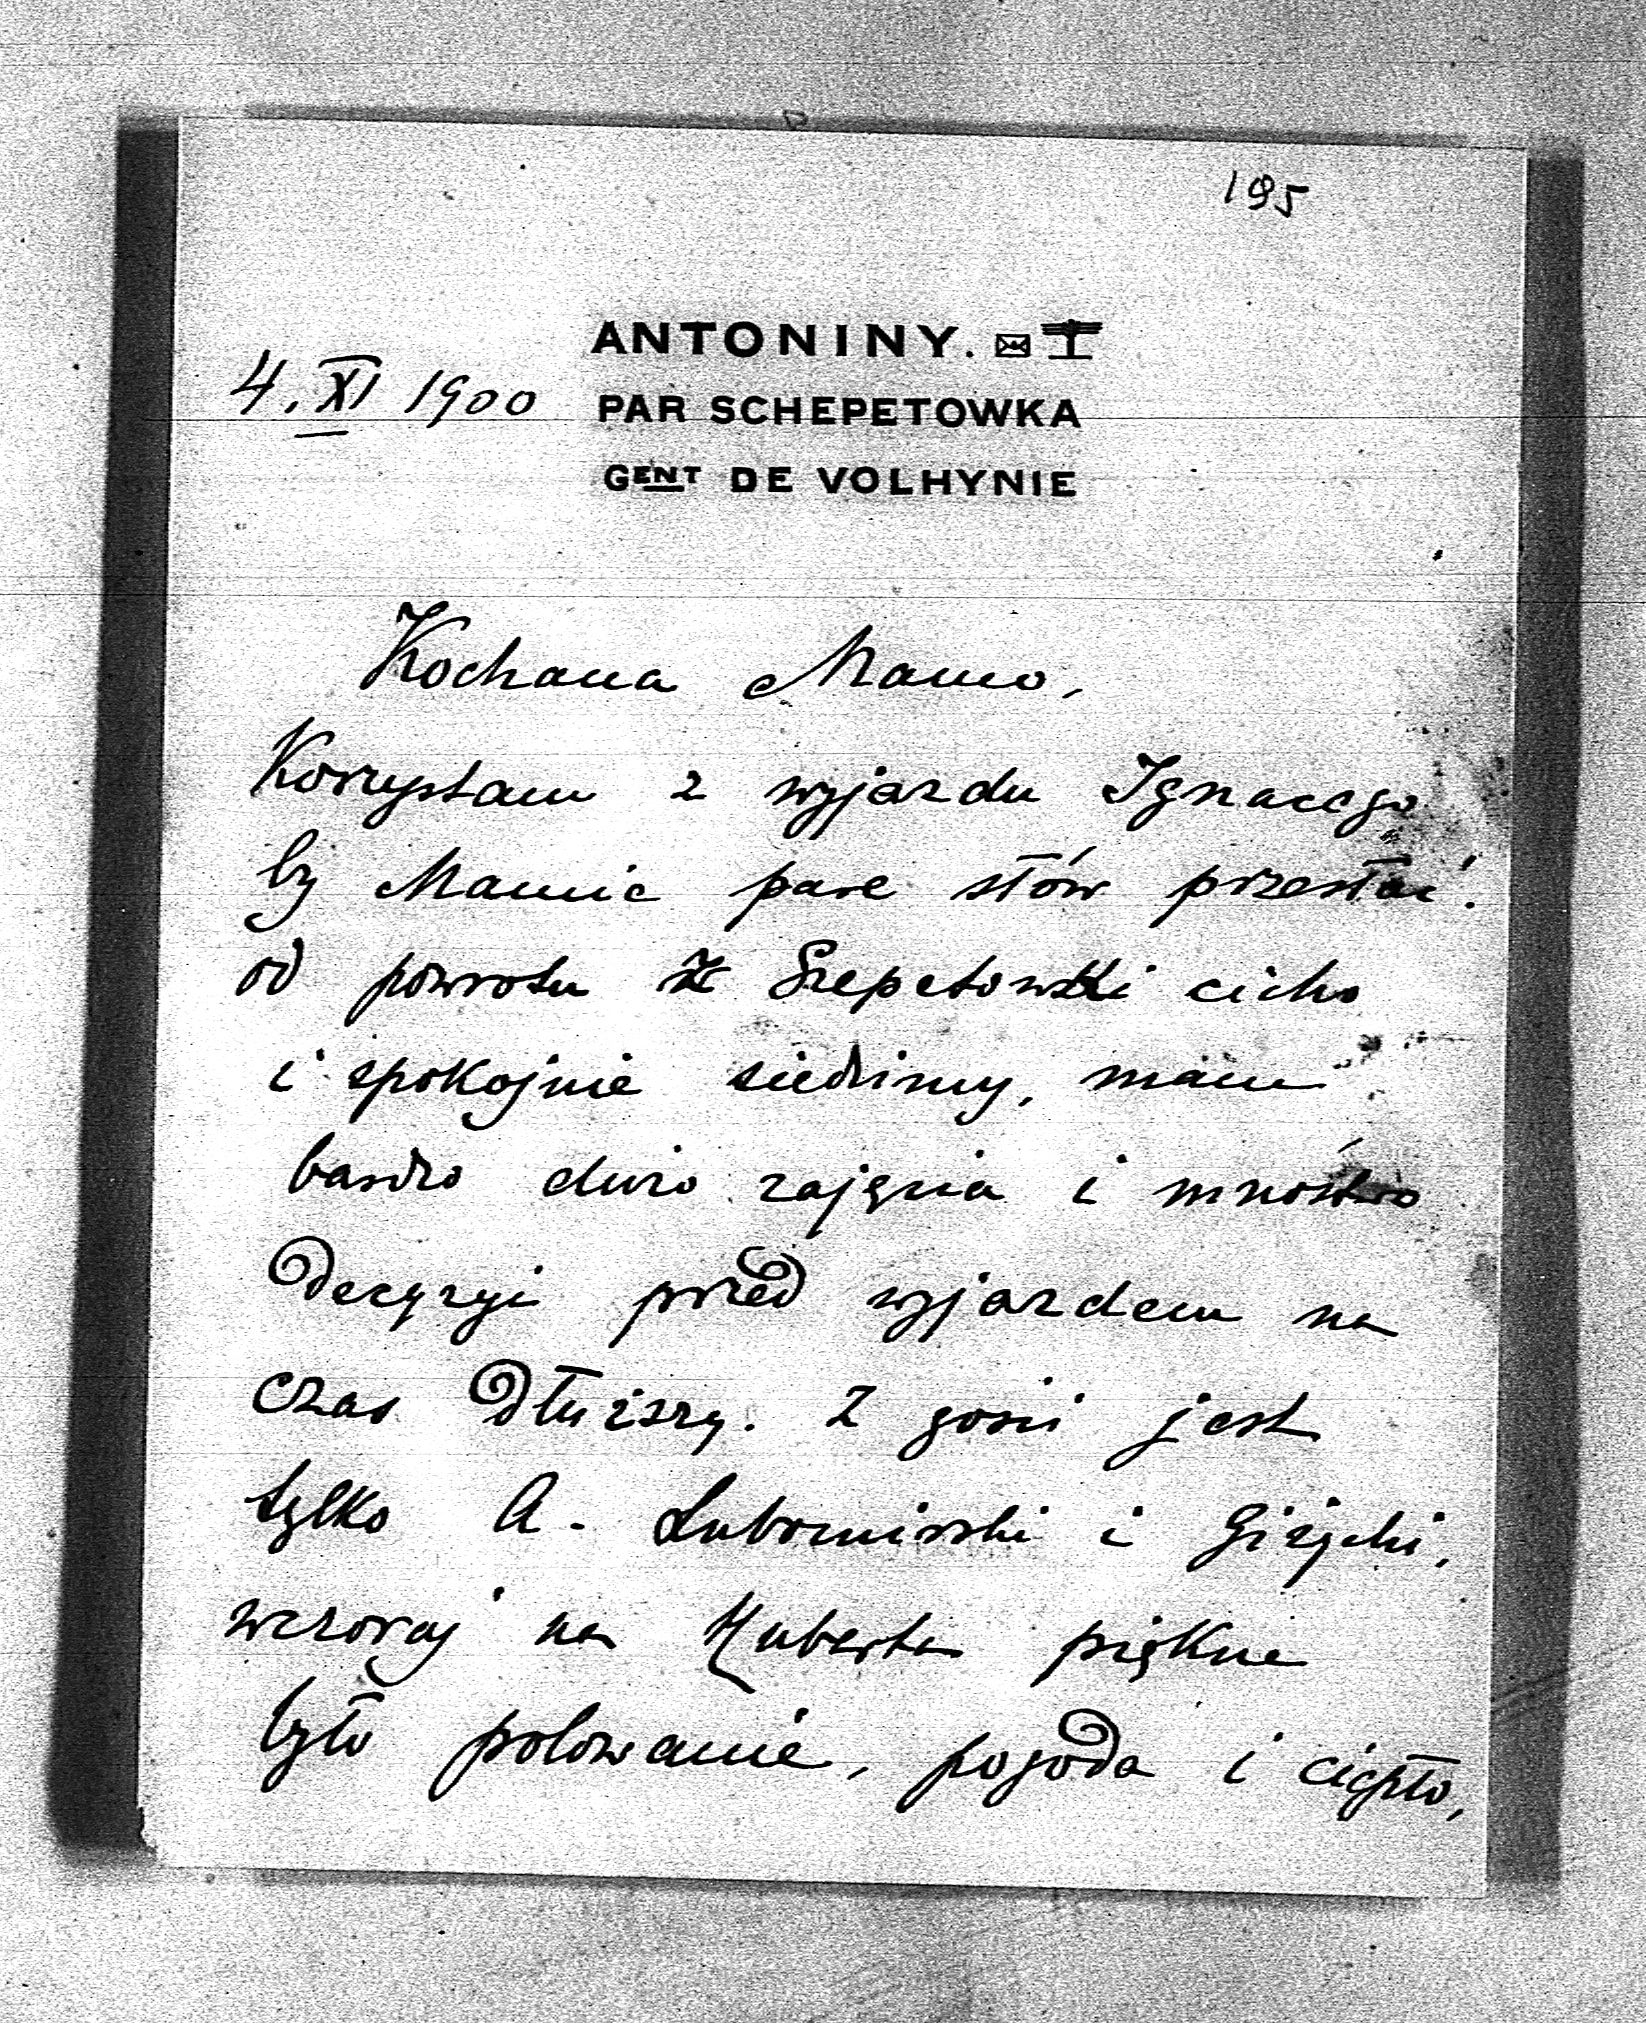 195
ANTONINY.
4. XI 1900
PAR SCHEPETOWKA
GENT DE VOLHYNIE
Kochana Mamo,
Korzystam z wyjazdu Ignacego
by Mamie parę słów przesłać.
od powrotu z Szepetowki cicho
i spokojnie siedzimy, mam
bardzo dużo zajęcia i mnóstwo
decyzyi przed wyjazdem na
czas dłuższy. Z gości jest
tylko A. Lubomirski i Giżycki,
wczoraj na Huberta piękne
było polowanie, pogoda i ciepło,